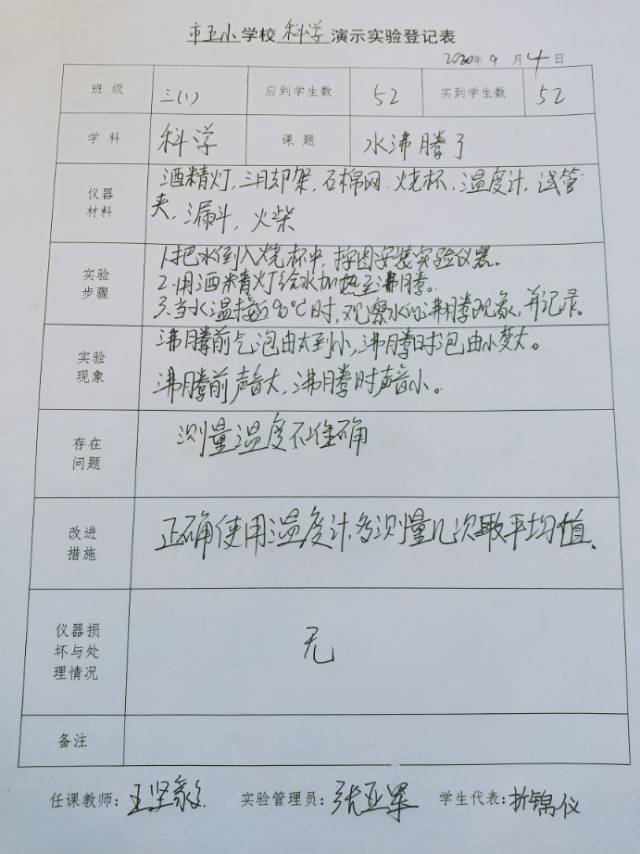 市五小学校科学演示实验登记表
2020年9月4日
班级 三(1) 应到学生数 52 实到学生数 52
学科 科学 课题 水沸腾了
仪器材料 酒精灯,三月却架,石棉网,烧杯,温度计,试管
夹,漏斗,火柴
实验步骤 1.把水倒入烧杯中,按图安装实验仪器。
2.用酒精灯给水加热至沸腾。
3.当水温接近90℃时,观察水的沸腾现象,并记录。
实验现象 沸腾前气泡由大到小,沸腾时泡由小变大。
沸腾前声音大,沸腾时声音小。
存在问题 测量温度不准确
改进措施 正确使用温度计,多测量几次取平均值、
仪器损坏与处理情况 无
备注
任课教师:王坚毅 实验管理员:张亚军 学生代表:折锦仪